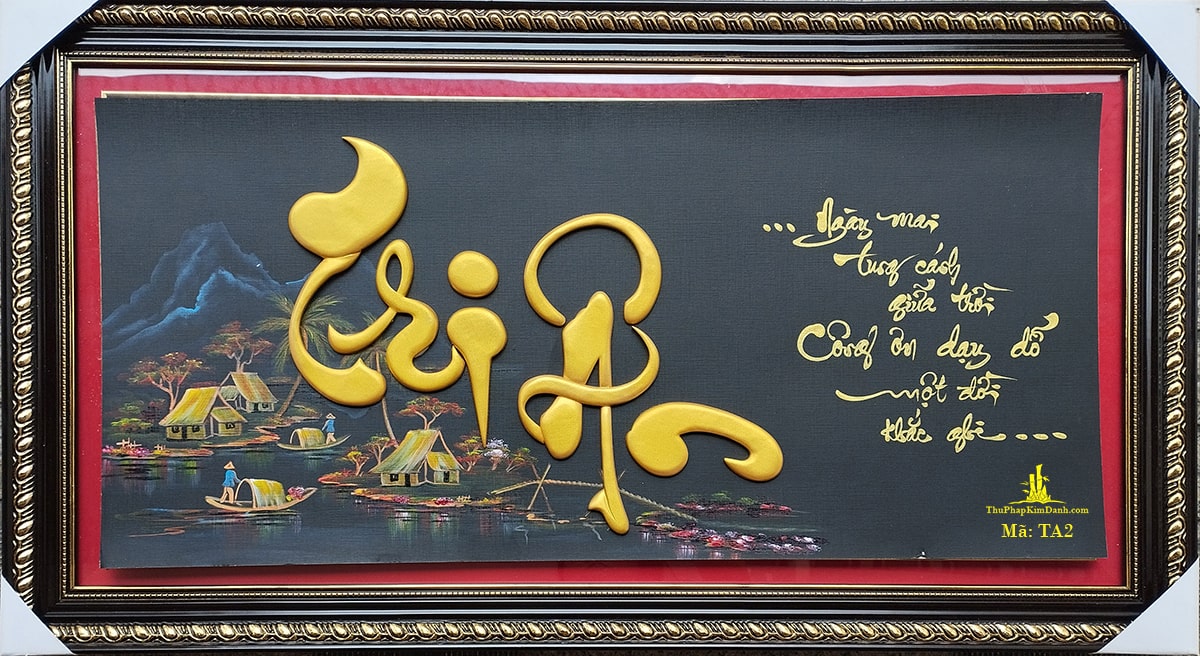 Tri Ân
... Ngày mai
tung cánh
giữa trời
Công ơn dạy dỗ
một đời
khắc ghi ....
ThuPhapKimDanh.com
Mã: TA2